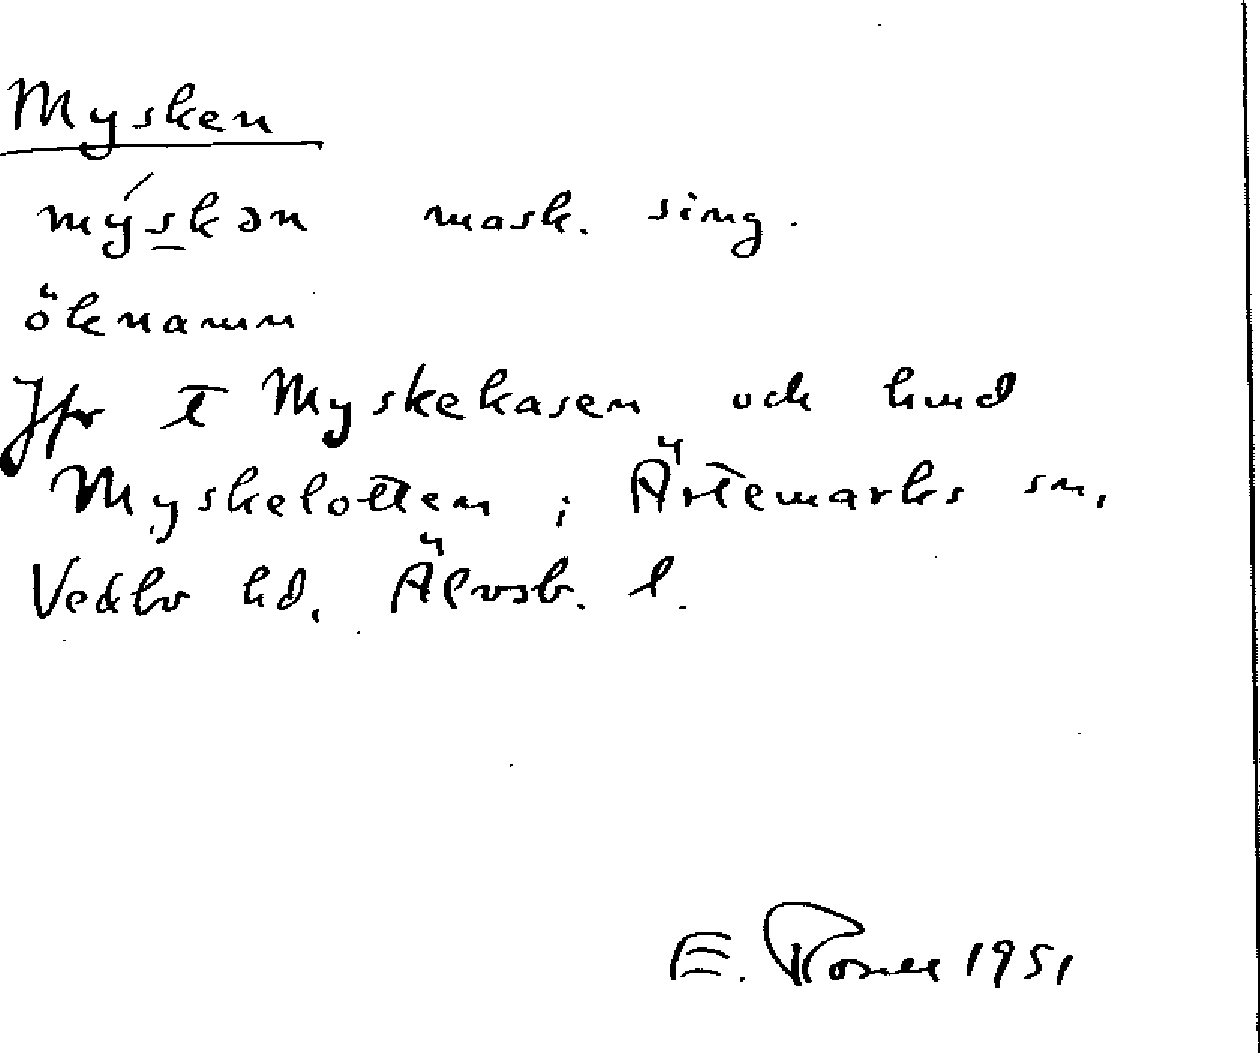 Mysken
mýskən mask. sing.
öknamn
Jfr t Myskekasen och hmd
Myskelotten i Ärtemarks sn,
Vedbo hd, Älvsb. l.
E. 1951